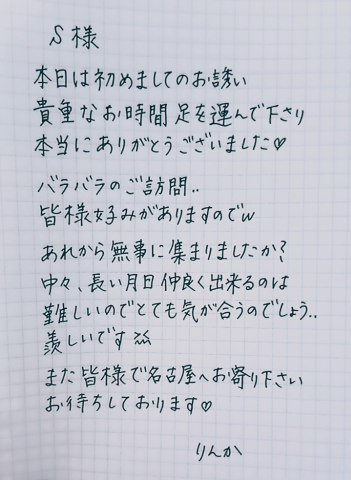 S様
本日は初めましてのお誘い
貴重なお時間 足を運んで下さり
本当にありがとうございました♡
バラバラのご訪問..
皆様好みがありますのでw
あれから無事に集まりましたか?
中々、長い月日 仲良く出来るのは
難しいのでとても気が合うのでしょう..
羨しいです
また皆様で名古屋へお寄り下さい
お待ちしております♡
りんか